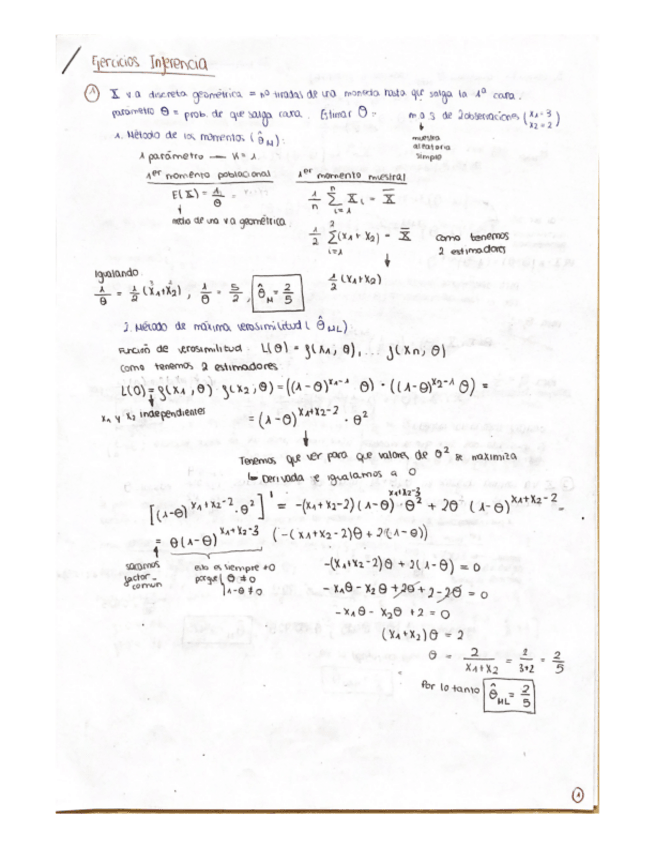 Ejercicios Inferencia
① X v a discreta geométrica = nº tiradas de una moneda hasta que salga la 1ª cara.
parámetro θ = prob. de que salga cara. Estimar θ = m a s de 2 observaciones (x₁ = 3 x₂ = 2)
muestra
aleatoria
simple
1. Método de los momentos (θ̂_M):
1 parámetro — K = 1
1er momento poblacional
1er momento muestral
E(X) = 1/θ
1/n Σ_{i=1}^{n} X_i = X̄
medio de una v a geométrica
1/2 Σ_{i=1}^{2} (x₁ + x₂) = X̄ como tenemos
2 estimadores
1/2 (x₁+x₂)
Igualando
1/θ = 1/2 (x₁+x₂), 1/θ = 5/2, θ̂_M = 2/5
2. Método de máxima verosimilitud (θ̂_ML):
Función de verosimilitud L(θ) = f(x₁, θ), ... f(xn, θ)
como tenemos 2 estimadores
L(θ) = f(x₁, θ) · f(x₂, θ) = ((1-θ)^{x₁-1} θ) · ((1-θ)^{x₂-1} θ) =
x₁ y x₂ independientes
= (1-θ)^{x₁+x₂-2} · θ²
Tenemos que ver para que valores de θ² se maximiza
Derivada e igualamos a 0
[(1-θ)^{x₁+x₂-2} · θ²]' = -(x₁+x₂-2)(1-θ)^{x₁+x₂-3} · θ² + 2θ (1-θ)^{x₁+x₂-2} =
= θ(1-θ)^{x₁+x₂-3} (-(x₁+x₂-2)θ + 2(1-θ))
sacamos
factor
común
esto es siempre ≠0
porque θ ≠ 0
1-θ ≠ 0
-(x₁+x₂-2)θ + 2(1-θ) = 0
-x₁θ - x₂θ + 2θ + 2 - 2θ = 0
-x₁θ - x₂θ + 2 = 0
(x₁+x₂)θ = 2
θ = 2/(x₁+x₂) = 2/(3+2) = 2/5
Por lo tanto θ̂_ML = 2/5
①